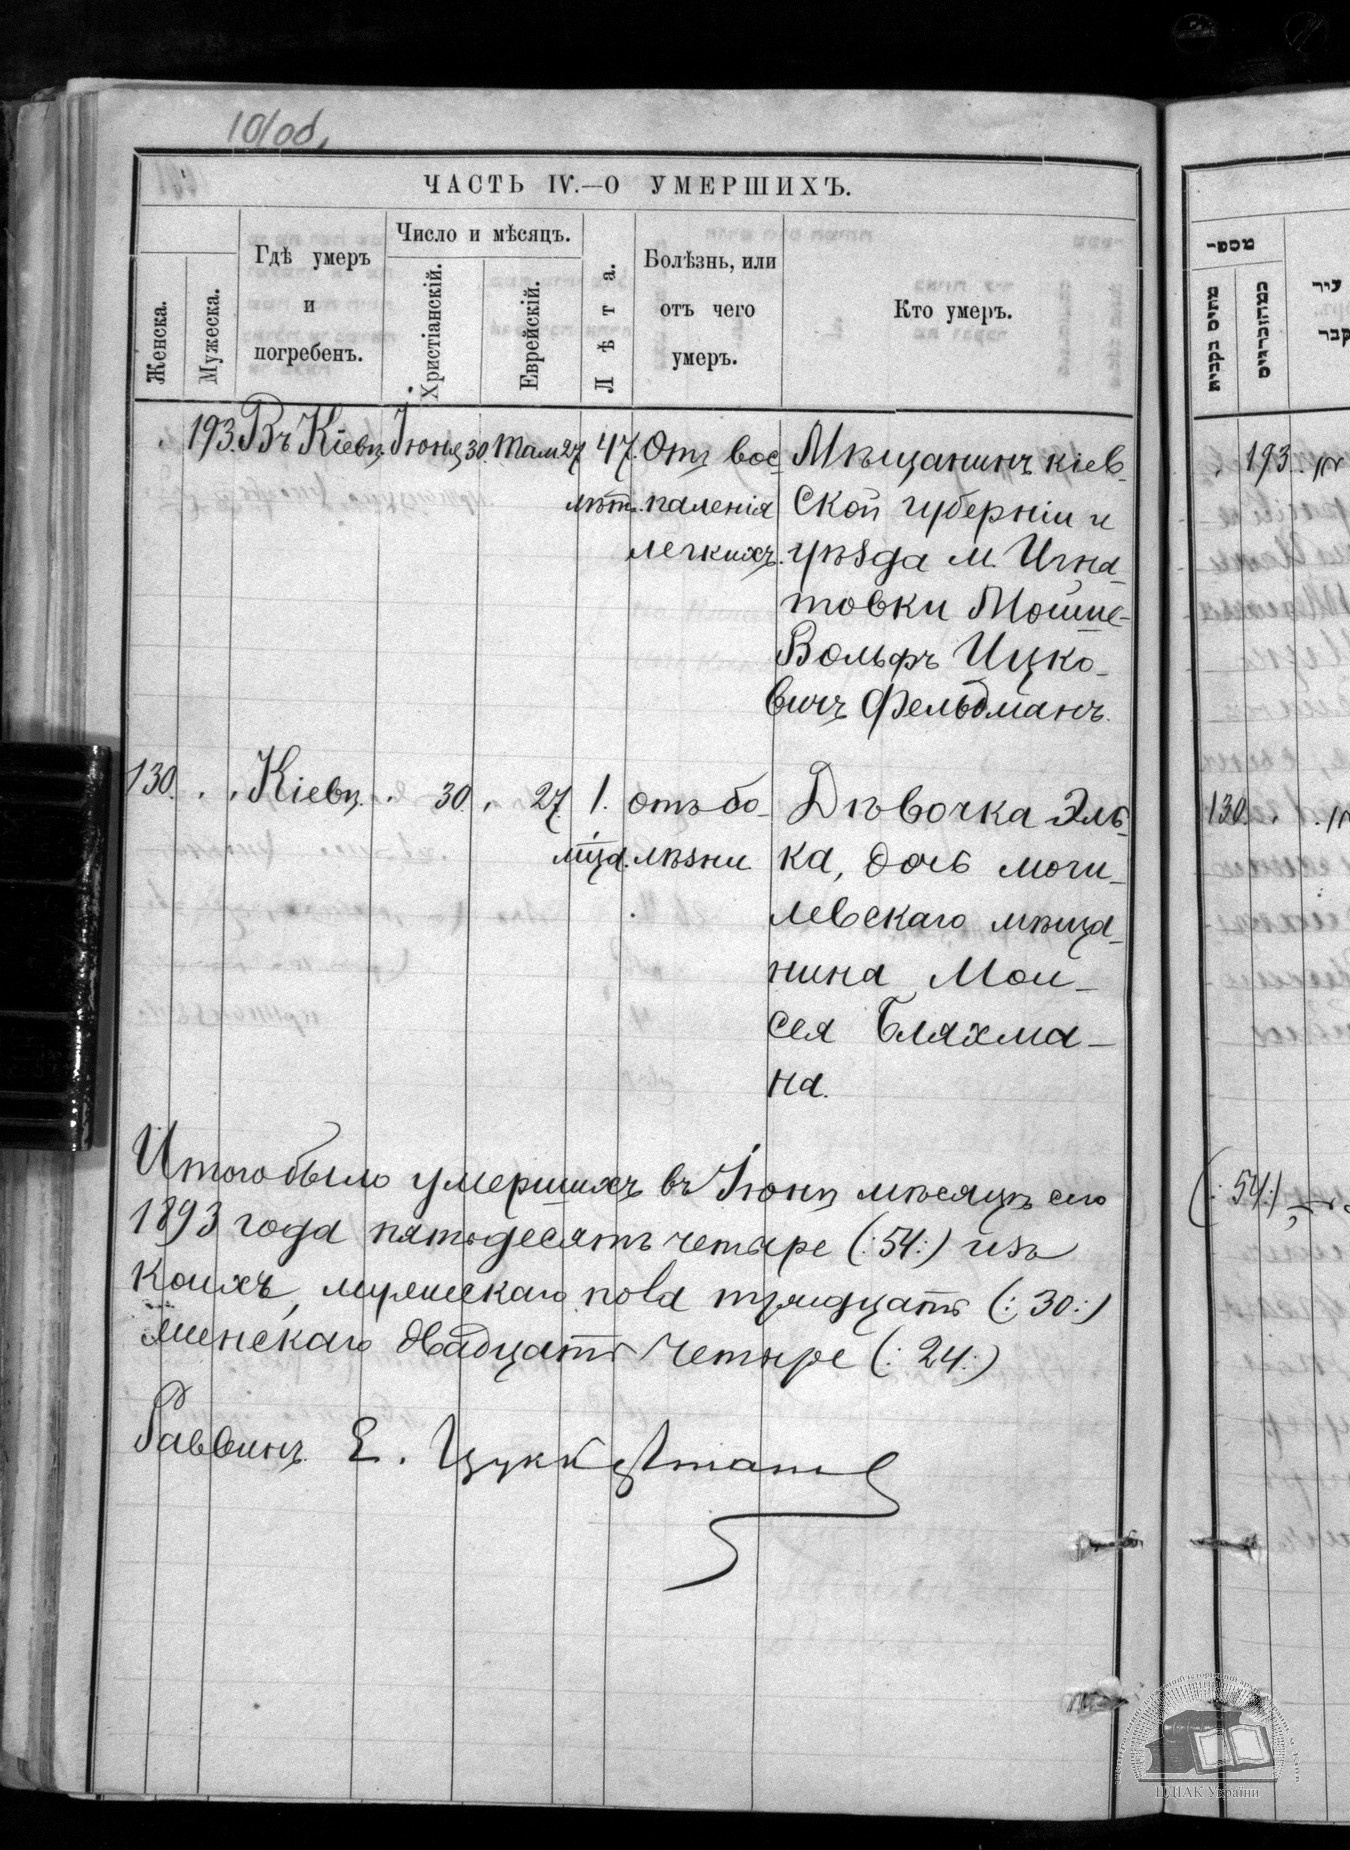 10/об,
ЧАСТЬ IV.—О УМЕРШИХЪ.
Женска.
Мужеска.
Гдѣ умеръ
и
погребенъ.
Число и мѣсяцъ.
Христіанскій.
Еврейскій.
Лѣта.
Болѣзнь, или
отъ чего
умеръ.
Кто умеръ.
193. Въ Кіевѣ Іюня 30. Там 27 47. Отъ вос- Мѣщанинъ кіев-
лѣт. паленія ской губерніи и
легкихъ. уѣзда м. Игна-
товки Мошке-
Вольфъ Ицко-
вичъ Фельдманъ.
130. Кіевѣ. 30. 27. 1. отъ бо- Дѣвочка Эль-
мца. лѣзни ка, дочь моги-
левскаго мѣща-
нина Мои-
сея Бляхма-
на.
Итого было умершихъ въ Іюнѣ мѣсяцѣ сего
1893 года пятьдесятъ четыре (:54:) изъ
коихъ, мужескаго пола тридцать (:30:)
женскаго двадцать четыре (:24:)
Раввинъ Е. Цуккерманъ
מספר
193
130
(:54:)
ЦДІАК України